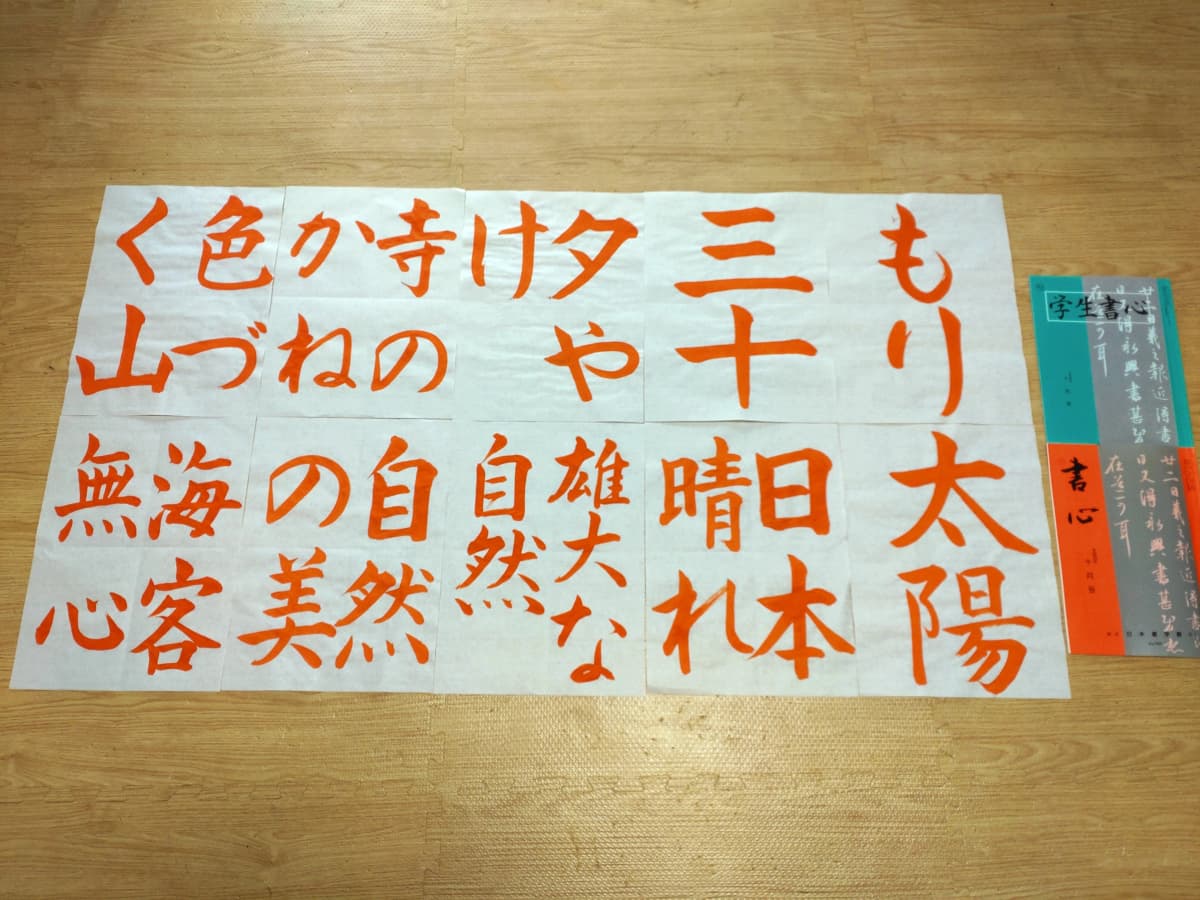 もり
三十
夕や
け
寺の
かね
色づ
く山
太陽
日本
晴れ
雄大な
自然
自然
の美
海客
無心
学生書心
書心